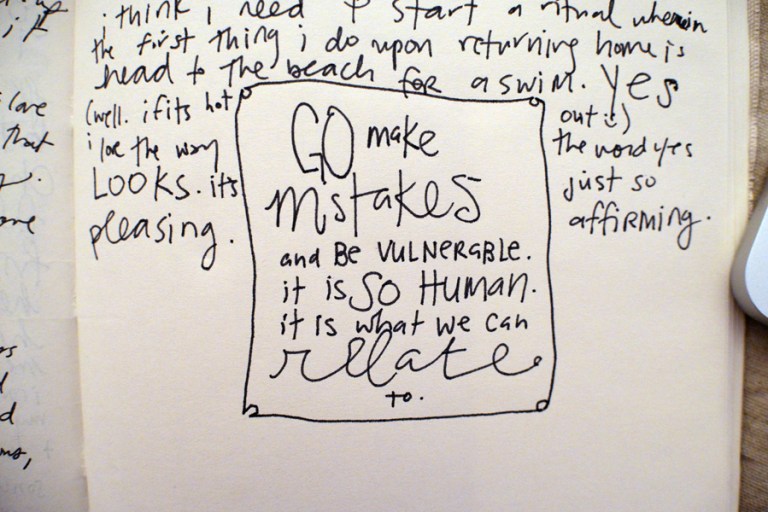 i think i need to start a ritual wherein
the first thing i do upon returning home is
head to the beach for a swim. yes
(well. if its hot out :)
i love the way the word yes
LOOKS. its just so
pleasing. affirming.
GO make
mstakes
and Be VULNERABLE.
it is SO HUMAN.
it is what we can
relate
to.
love
that